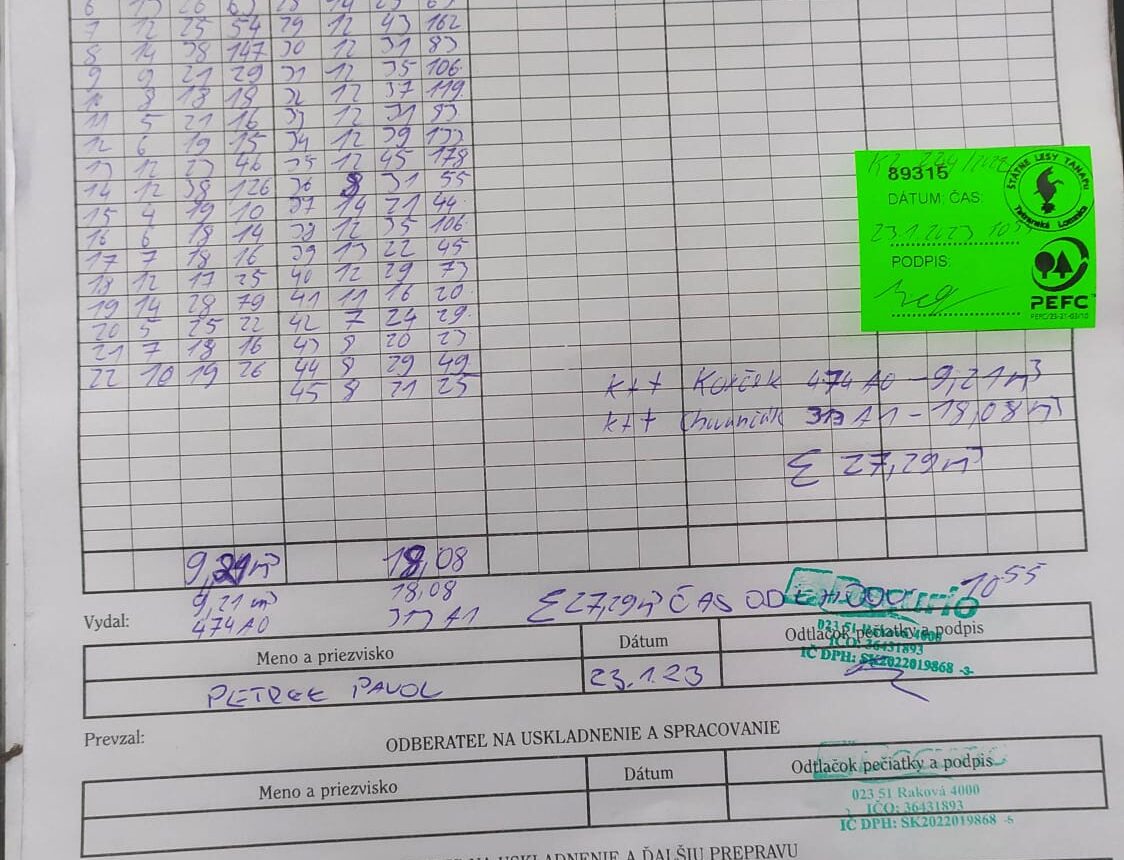 7 12 25 54 29 12 43 162
8 14 38 147 30 12 31 83
9 9 21 29 31 12 35 106
10 8 18 18 32 12 37 119
11 5 21 16 33 12 31 83
12 6 19 15 34 12 39 133
13 12 23 46 35 12 45 178
14 12 38 126 36 8 31 55
15 4 19 10 37 14 21 44
16 6 18 14 38 12 35 106
17 7 18 16 39 13 22 45
18 12 17 25 40 12 29 73
19 14 28 79 41 11 16 20
20 5 25 22 42 7 24 29
21 7 18 16 43 8 20 23
22 10 19 26 44 8 29 49
45 8 21 25
89315
ŠTÁTNE LESY TANAPU
Tatranská Lomnica
DÁTUM: ČAS:
23.1.2023 10
PODPIS:
PEFC
PEFC/23-21-03/10
474 A0 - 9,21 m³
313 A1 - 18,08 m³
Σ 27,29 m³
9,21 m³ 18,08
9,21 m³ 18,08
474 A0 313 A1
Σ 27,29 m³ ČAS 10 55
Vydal:
Meno a priezvisko Dátum Odtlačok pečiatky a podpis
PAVOL 23.1.23
023 51 Raková 4000
IČO: 36431893
IČ DPH: SK2022019868 -3-
Prevzal:
ODBERATEĽ NA USKLADNENIE A SPRACOVANIE
Meno a priezvisko Dátum Odtlačok pečiatky a podpis
023 51 Raková 4000
IČO: 36431893
IČ DPH: SK2022019868
NA USKLADNENIE A ĎALŠIU PREPRAVU